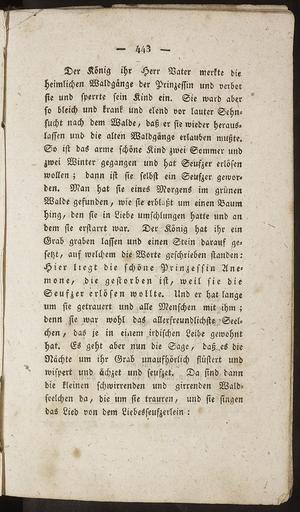 — 443 —
Der König ihr Herr Vater merkte die
heimlichen Waldgänge der Prinzessin und verbot
sie und sperrte sein Kind ein. Sie ward aber
so bleich und krank und elend vor lauter Sehn-
sucht nach dem Walde, daß er sie wieder heraus-
lassen und die alten Waldgänge erlauben mußte.
So ist das arme schöne Kind zwei Sommer und
zwei Winter gegangen und hat Seufzer erlösen
wollen; dann ist sie selbst ein Seufzer gewor-
den. Man hat sie eines Morgens im grünen
Walde gefunden, wie sie erblaßt um einen Baum
hing, den sie in Liebe umschlungen hatte und an
dem sie erstarrt war. Der König hat ihr ein
Grab graben lassen und einen Stein darauf ge-
setzt, auf welchem die Worte geschrieben standen:
Hier liegt die schöne Prinzessin Ane-
mone, die gestorben ist, weil sie die
Seufzer erlösen wollte. Und er hat lange
um sie getrauert und alle Menschen mit ihm;
denn sie war wohl das allerfreundlichste Seel-
chen, das je in einem irdischen Leibe gewohnt
hat. Es geht aber nun die Sage, daß es die
Nächte um ihr Grab unaufhörlich flüstert und
wispert und ächzet und seufzet. Da sind dann
die kleinen schwirrenden und girrenden Wald-
seelchen da, die um sie trauren, und sie singen
das Lied von dem Liebesseufzerlein: